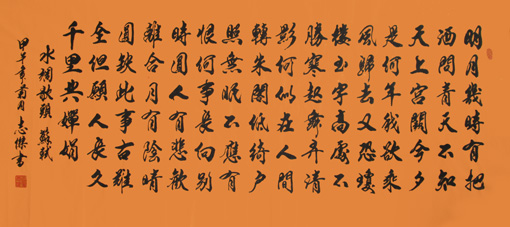 明月幾時有把
酒問青天不知
天上宮闕今夕
是何年我欲乘
風歸去又恐瓊
樓玉宇高處不
勝寒起舞弄清
影何似在人間
轉朱閣低綺戶
照無眠不應有
恨何事長向別
時圓人有悲歡
離合月有陰晴
圓缺此事古難
全但願人長久
千里共嬋娟
水調歌頭 蘇軾
甲午年菊月 志傑書